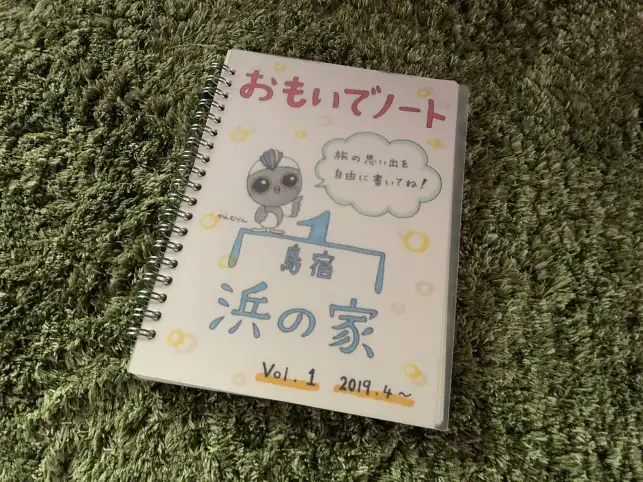 おもいでノート
旅の思い出を
自由に書いてね!
かんむりん
島宿
浜の家
Vol. 1 2019. 4～